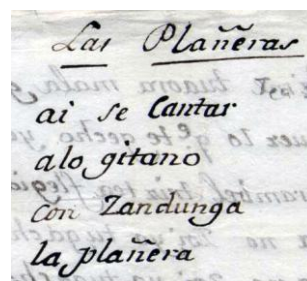 Las Plañeras
ai se Cantar
alo gitano
con Zandunga
la plañera